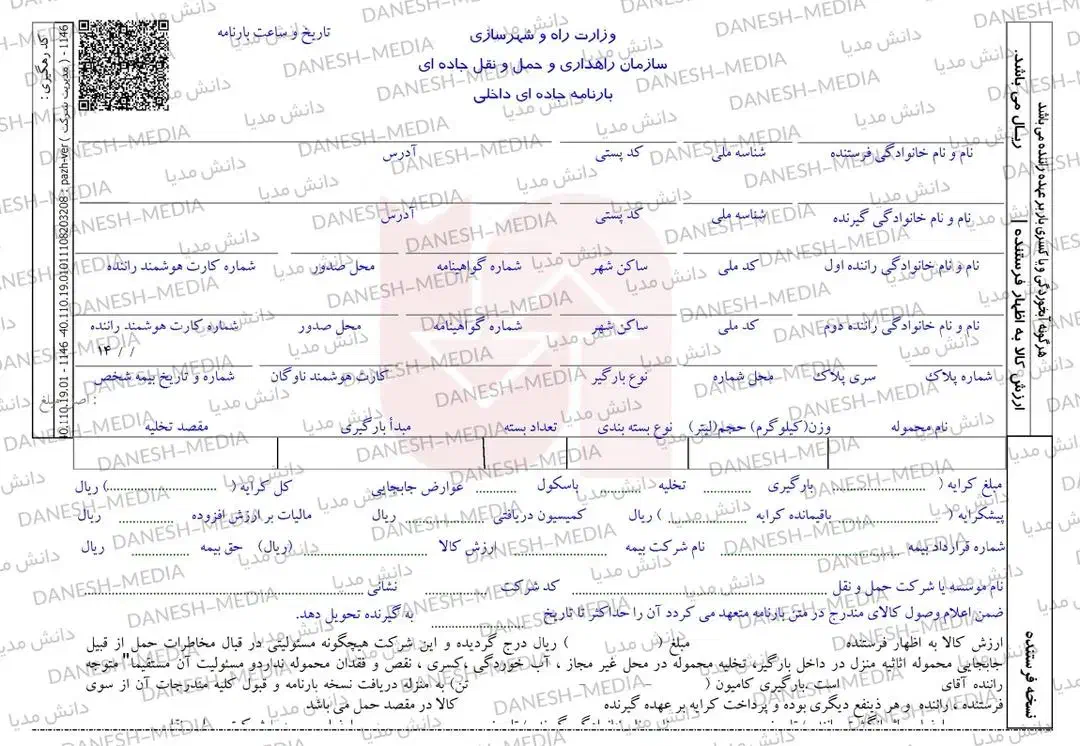 وزارت راه و شهرسازی
تاریخ و ساعت بارنامه
سازمان راهداری و حمل و نقل جاده ای
بارنامه جاده ای داخلی
نام و نام خانوادگی فرستنده شناسه ملی کد پستی آدرس
نام و نام خانوادگی گیرنده شناسه ملی کد پستی آدرس
نام و نام خانوادگی راننده اول کد ملی ساکن شهر شماره گواهینامه محل صدور شماره کارت هوشمند راننده
نام و نام خانوادگی راننده دوم کد ملی ساکن شهر شماره گواهینامه محل صدور شماره کارت هوشمند راننده
۱۴ / /
شماره پلاک سری پلاک محل شماره نوع بارگیر کارت هوشمند ناوگان شماره و تاریخ بیمه شخص
نام محموله وزن(کیلوگرم) حجم(لیتر) نوع بسته بندی تعداد بسته مبدأ بارگیری مقصد تخلیه
مبلغ کرایه ( ........ بارگیری ........ تخلیه ........ باسکول ........ عوارض جابجایی کل کرایه ( ........) ریال
پیشکرایه ( ........ باقیمانده کرایه ( ........ ) ریال کمیسیون دریافتی ........ ریال مالیات بر ارزش افزوده ........ ریال
شماره قرارداد بیمه ........ نام شرکت بیمه ........ ارزش کالا ........ (ریال) حق بیمه ........ ریال
نام موسسه یا شرکت حمل و نقل ........ کد شرکت ........ نشانی ........
ضمن اعلام وصول کالای مندرج در متن بارنامه متعهد می گردد آن را حداکثر تا تاریخ ........ به گیرنده تحویل دهد.
ارزش کالا به اظهار فرستنده مبلغ ( ) ریال درج گردیده و این شرکت هیچگونه مسئولیتی در قبال مخاطرات حمل از قبیل
جابجایی محموله اثاثیه منزل در داخل بارگیر، تخلیه محموله در محل غیر مجاز ، آب خوردگی ،کسری ، نقص و فقدان محموله نداردو مسئولیت آن مستقیما" متوجه
راننده آقای است .بارگیری کامیون ( – – تن) به منزله دریافت نسخه بارنامه و قبول کلیه مندرجات آن از سوی
فرستنده ، راننده و هر ذینفع دیگری بوده و پرداخت کرایه بر عهده گیرنده کالا در مقصد حمل می باشد
هرگونه آبخوردگی ویا کسری بار بر عهده راننده می باشد
ارزش کالا به اظهار فرستنده ریال می باشد.
نسخه فرستنده
کد رهگیری :
40.110.19.01 - 1146 -40.110.19.0101108203208 : pazh-ver ( مدیریت شرکت ) - 1146
DANESH-MEDIA
دانش مدیا